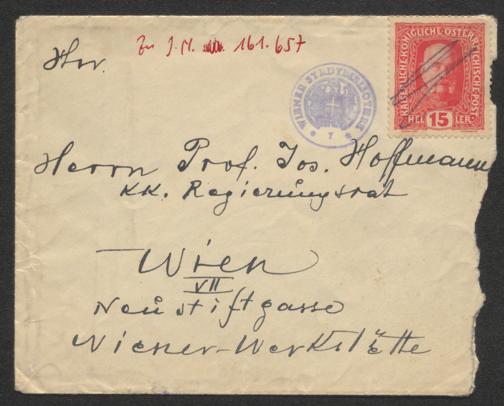 Zu J.N. 161.657
Hr.
WIENER STADTBIBLIOTHEK
KAISERLICHE KÖNIGLICHE ÖSTERREICHISCHE POST
HEL 15 LER
Herrn Prof. Jos. Hoffmann
KK. Regierungsrat
Wien
VII
Neustiftgasse
Wiener-Werkstätte